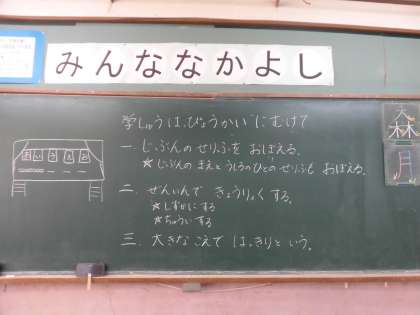 みんななかよし
学しゅうはっぴょうかいにむけて
一 じぶんのせりふを おぼえる。
★じぶんの まえと うしろのひとのせりふも おぼえる。
二 ぜんいんで きょうりょくする。
★しずかにする
★ちゅういする
三 大きなこえで はっきりと いう。
森
月